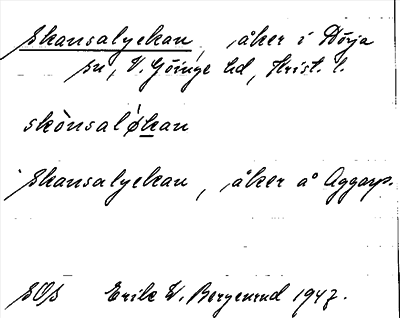 Skansalyckan, åker i Nörja
sn, V. Göinge hd, Krist. l.
skònsaløkan
Skansalyckan, åker å Aggarp.
SOS Erik W. Bergenrud 1947.